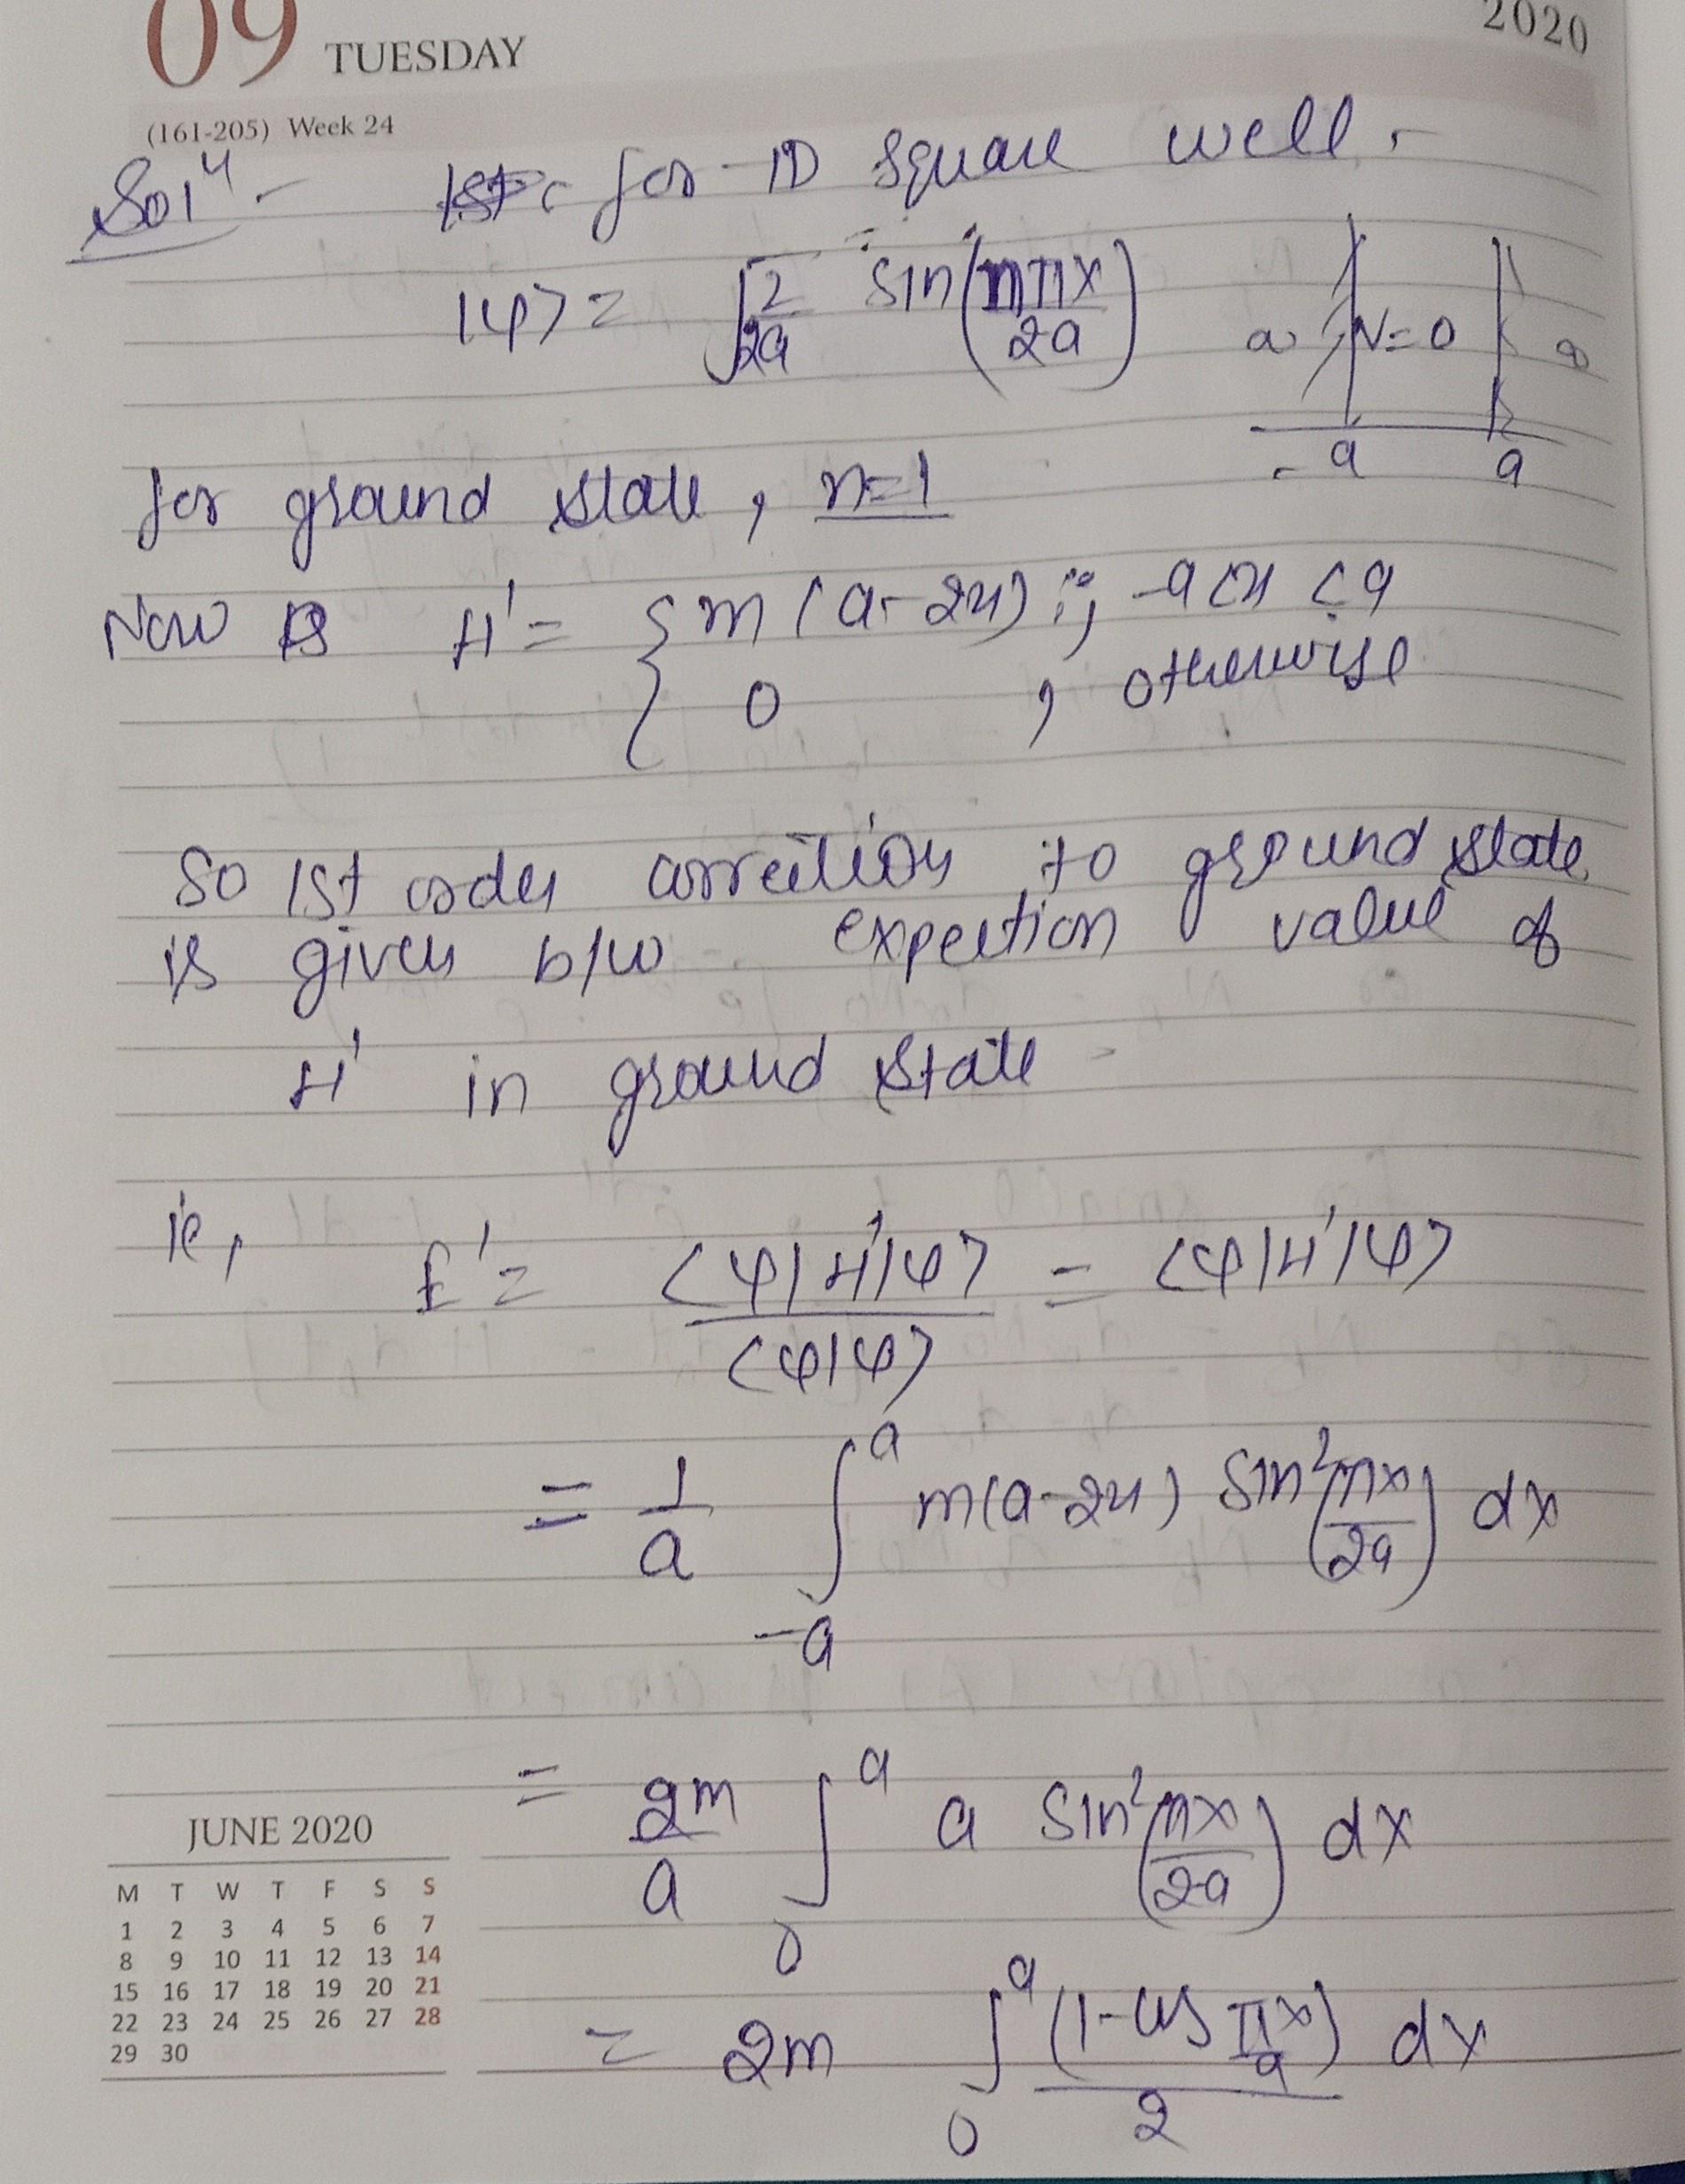 09 TUESDAY
2020
(161-205) Week 24
Solⁿ - for 1D square well.
|ψ> = √(2/2a) sin(nπx/2a)
∞ V=0 ∞
-a a
for ground state, n=1
Now H' = { m(a-2x) ; -a<x<a
0 , otherwise
So 1st order correction to ground state
is given b/w expection value of
H' in ground state
ie, E' = <ψ|H'|ψ> / <ψ|ψ> = <ψ|H'|ψ>
= 1/a ∫_{-a}^{a} m(a-2x) sin²(πx/2a) dx
= 2m/a ∫_0^a a sin²(πx/2a) dx
= 2m ∫_0^a (1-cos πx/a)/2 dx
JUNE 2020
M T W T F S S
1 2 3 4 5 6 7
8 9 10 11 12 13 14
15 16 17 18 19 20 21
22 23 24 25 26 27 28
29 30